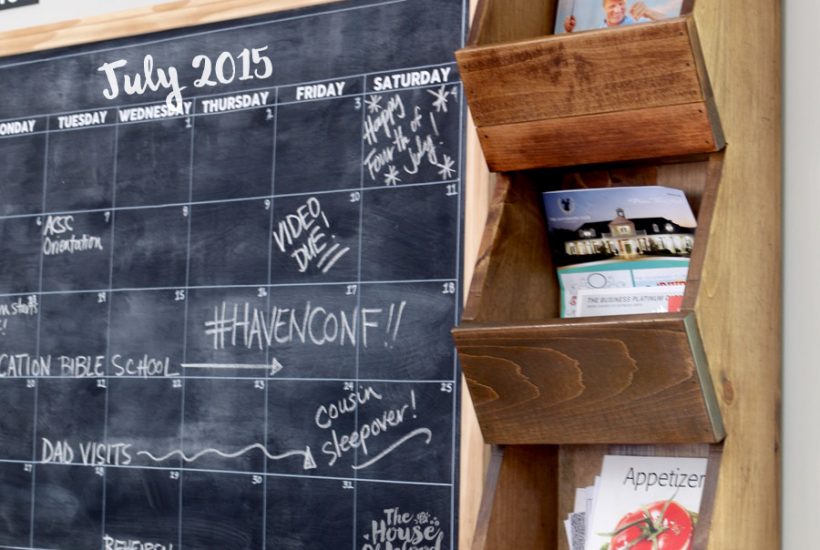 July 2015
ONDAY TUESDAY WEDNESDAY THURSDAY FRIDAY SATURDAY
1 2 3 4
Happy
Fourth of
July!
6 7 8 9 10 11
ACSC
Orientation
VIDEO
DUE!
14 15 16 17 18
#HAVENCONF!!
CATION BIBLE SCHOOL
20 21 22 23 24 25
cousin
sleepover!
DAD VISITS
27 28 29 30 31
The
House
of Wood
THE BUSINESS PLATINUM
Appetizer